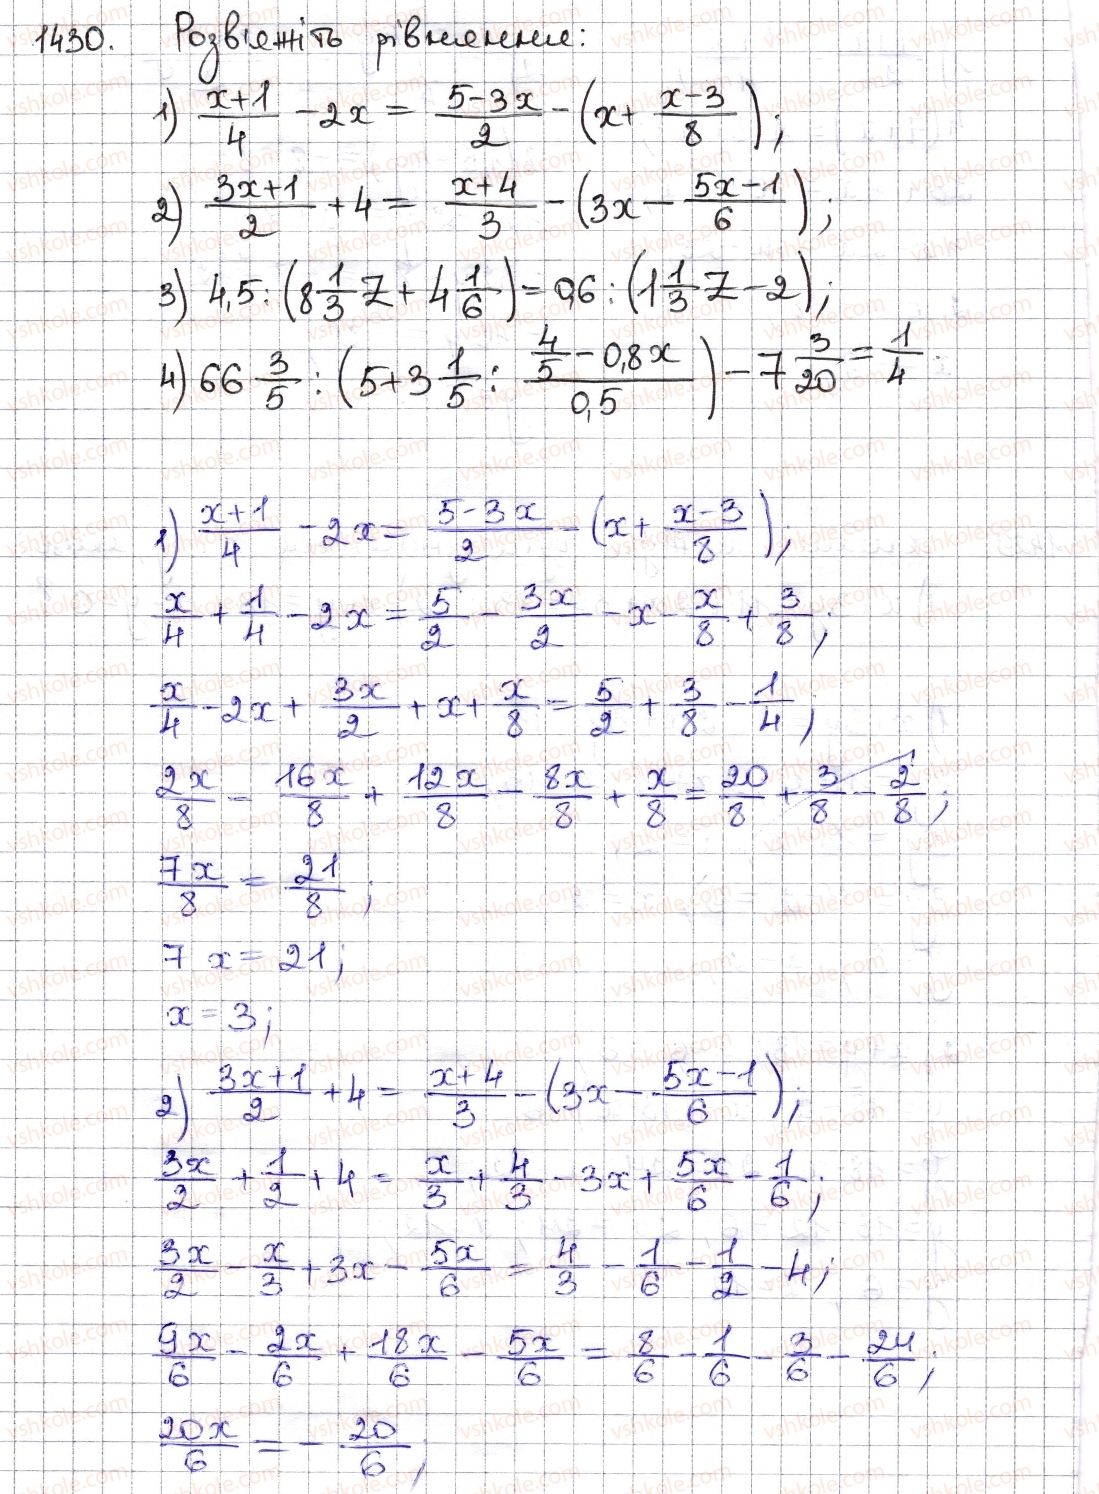 1430. Розв'яжіть рівняння:
1) (x+1)/4 - 2x = (5-3x)/2 - (x + (x-3)/8);
2) (3x+1)/2 + 4 = (x+4)/3 - (3x - (5x-1)/6);
3) 4,5 : (8 1/3 z + 4 1/6) = 0,6 : (1 1/3 z - 2);
4) 66 3/5 : (5 + 3 1/5 : (4/5 - 0,8x)/0,5) - 7 3/20 = 1/4.
1) (x+1)/4 - 2x = (5-3x)/2 - (x + (x-3)/8);
x/4 + 1/4 - 2x = 5/2 - 3x/2 - x - x/8 + 3/8;
x/4 - 2x + 3x/2 + x + x/8 = 5/2 + 3/8 - 1/4;
2x/8 - 16x/8 + 12x/8 - 8x/8 + x/8 = 20/8 + 3/8 - 2/8;
7x/8 = 21/8;
7x = 21;
x = 3;
2) (3x+1)/2 + 4 = (x+4)/3 - (3x - (5x-1)/6);
3x/2 + 1/2 + 4 = x/3 + 4/3 - 3x + 5x/6 - 1/6;
3x/2 - x/3 + 3x - 5x/6 = 4/3 - 1/6 - 1/2 - 4;
9x/6 - 2x/6 + 18x/6 - 5x/6 = 8/6 - 1/6 - 3/6 - 24/6;
20x/6 = - 20/6;